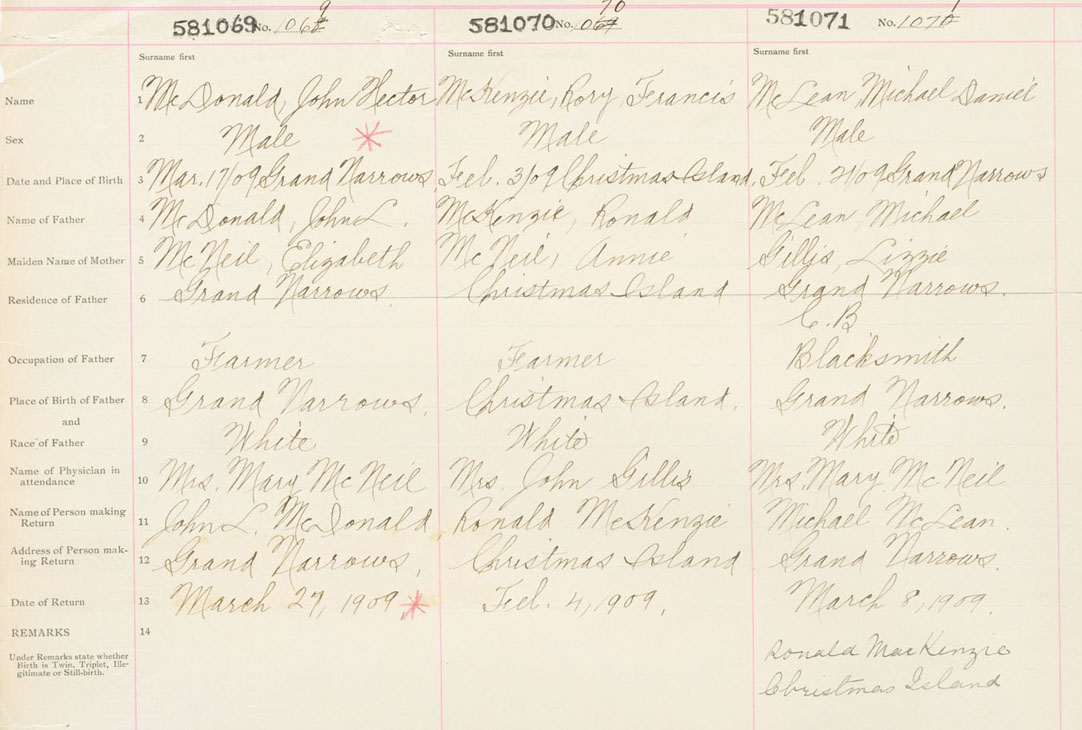 581069 No. 1069
581070 No. 1070
581071 No. 1071
Surname first
Surname first
Surname first
Name 1 McDonald, John Hector McKenzie, Rory Francis McLean, Michael Daniel
Sex 2 Male Male Male
Date and Place of Birth 3 Mar. 17/09 Grand Narrows, Feb. 3/09 Christmas Island, Feb. 2/09 Grand Narrows
Name of Father 4 McDonald, John L. McKenzie, Ronald McLean, Michael
Maiden Name of Mother 5 McNeil, Elizabeth McNeil, Annie Gillis, Lizzie
Residence of Father 6 Grand Narrows. Christmas Island Grand Narrows.
C. B
Occupation of Father 7 Farmer Farmer Blacksmith
Place of Birth of Father 8 Grand Narrows, Christmas Island. Grand Narrows.
and
Race of Father 9 White White White
Name of Physician in
attendance 10 Mrs. Mary McNeil Mrs. John Gillis Mrs. Mary McNeil
Name of Person making
Return 11 John L. McDonald Ronald McKenzie Michael McLean.
Address of Person mak-
ing Return 12 Grand Narrows, Christmas Island Grand Narrows.
Date of Return 13 March 27, 1909 Feb. 4, 1909. March 8, 1909.
REMARKS 14
Under Remarks state whether
Birth is Twin, Triplet, Ille-
gitimate or Still-birth.
Ronald MacKenzie
Christmas Island